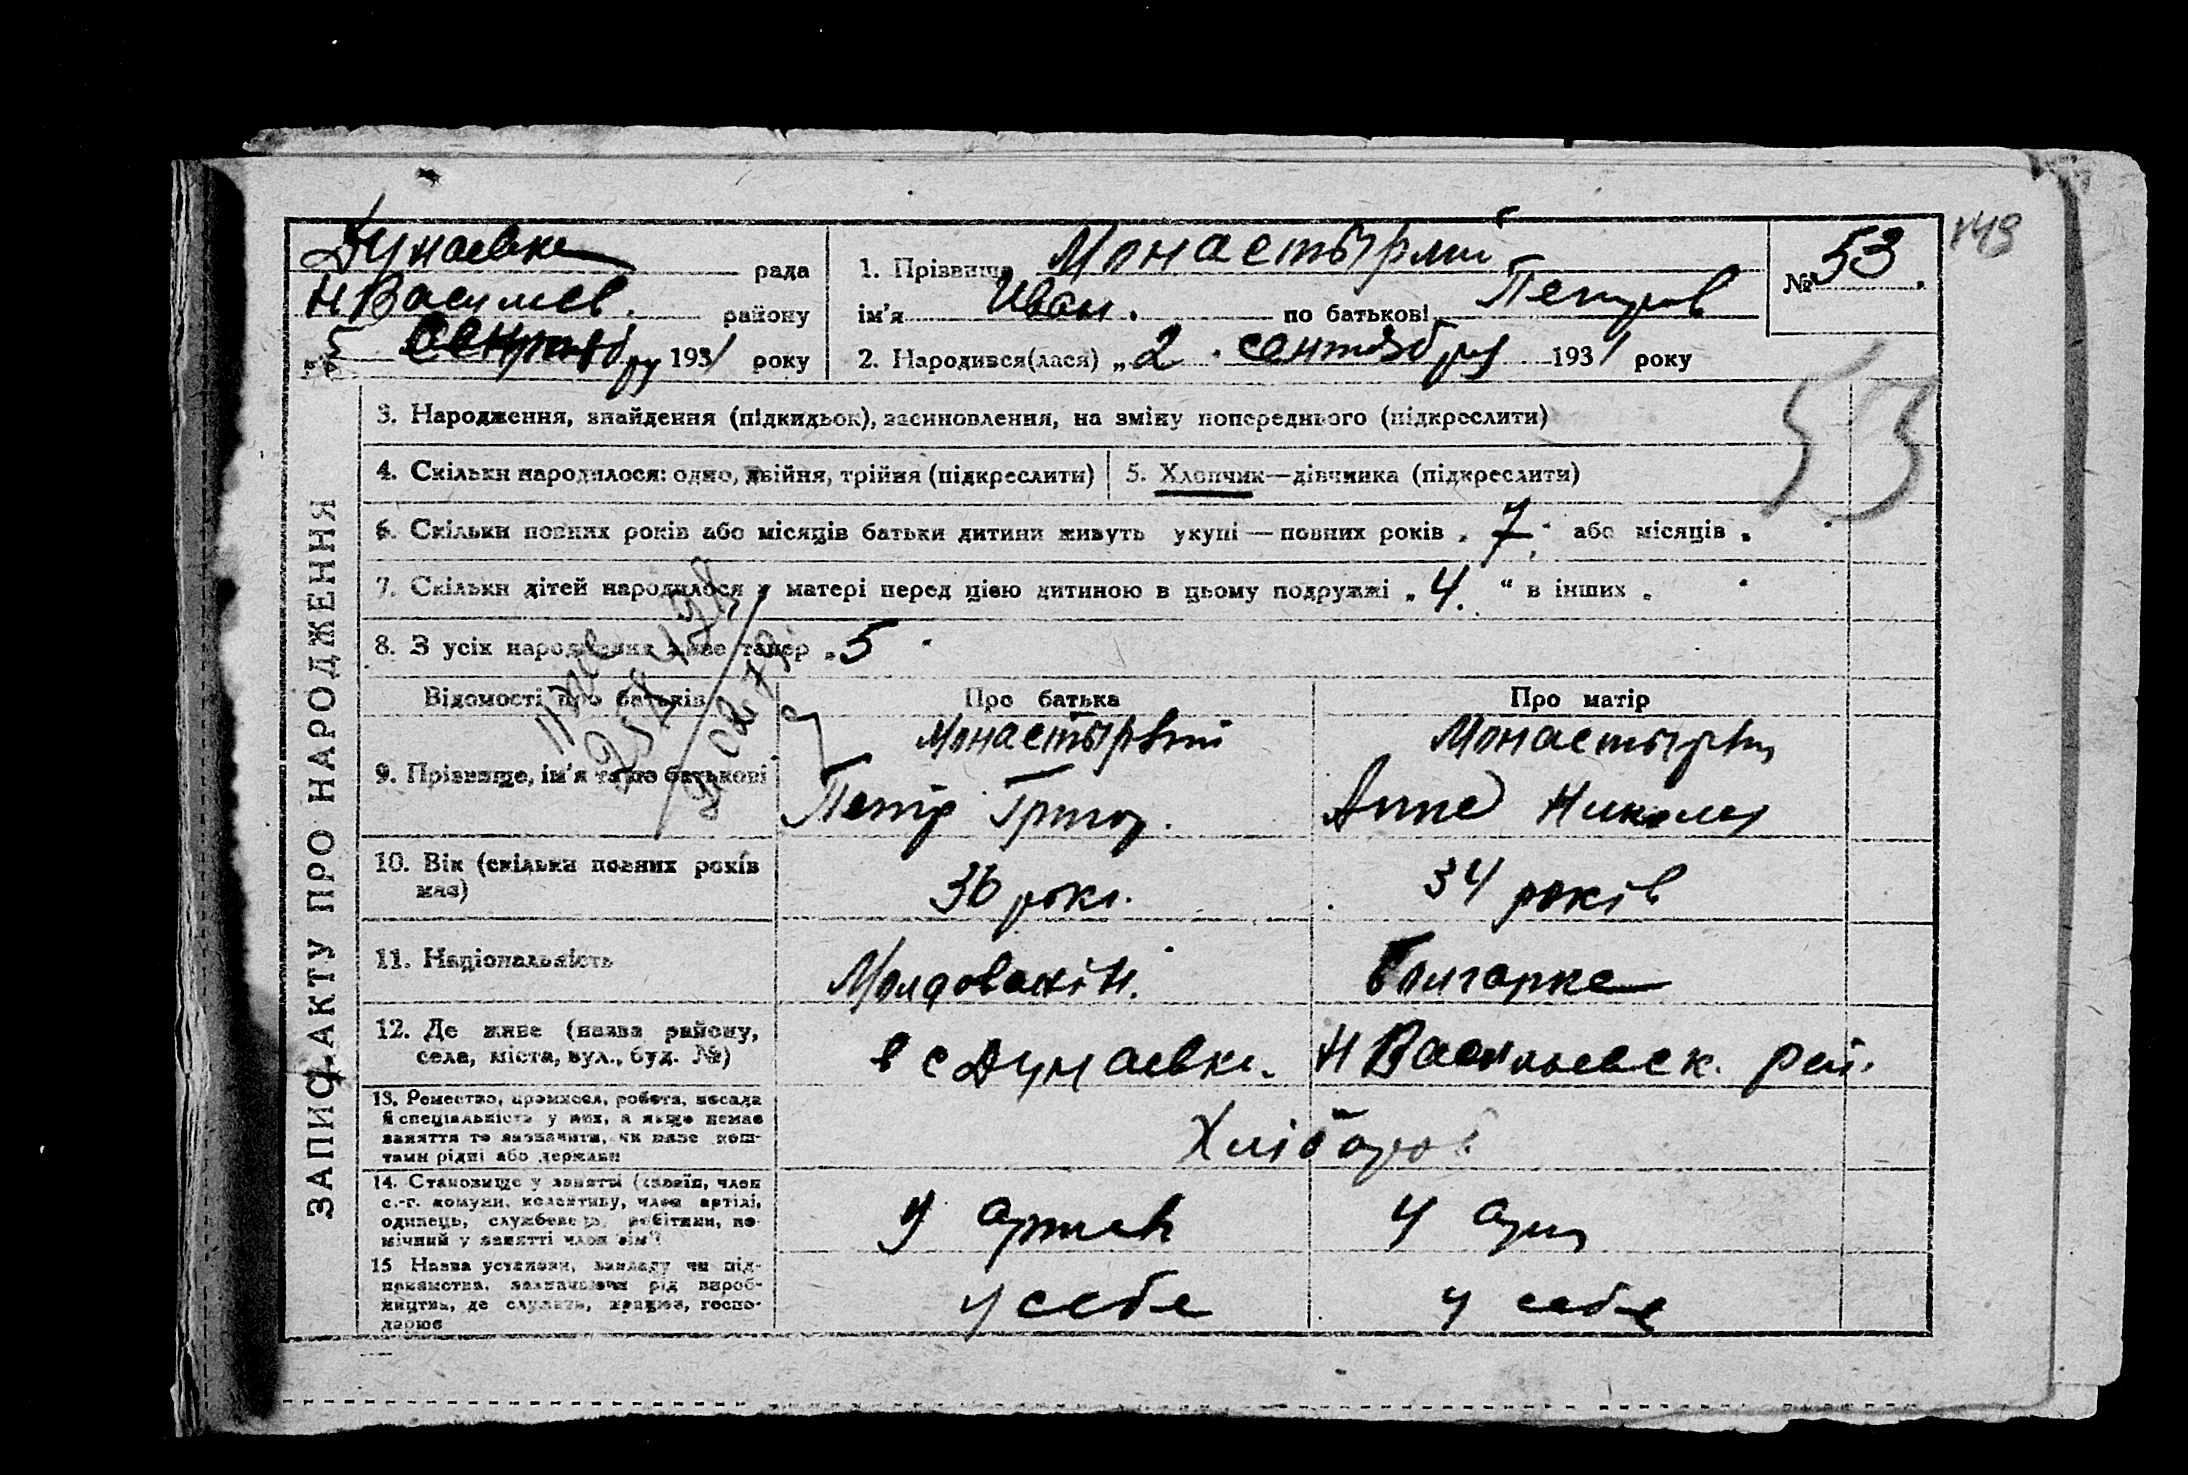 Дунаевка рада
Н Василев. району
„5 сентябру 1931 року
1. Прізвище Монастырлий
ім'я Иван. по батькові Петров
2. Народився(лася) „2 сентября 1931 року
№ 53.
149
53
ЗАПИС АКТУ ПРО НАРОДЖЕННЯ
3. Народження, знайдення (підкидьок), засиновлення, на зміну попереднього (підкреслити)
4. Скільки народилося: одно, двійня, трійня (підкреслити)
5. Хлопчик—дівчинка (підкреслити)
6. Скільки повних років або місяців батьки дитини живуть укупі — повних років „ 7 або місяців „
7. Скільки дітей народилося у матері перед цією дитиною в цьому подружжі „ 4. “ в інших „
8. З усіх народжених живе тапер „ 5
Відомості про батьків Про батька Про матір
9. Прізвище, ім'я та по батькові
Монастырлий
Петір Григор.
Монастырлы
Анна Николая
10. Вік (скільки повних років
має)
36 рокі.
34 років
11. Національність Молдованін. Болгарка
12. Де живе (назва району,
села, міста, вул., буд. №)
в с Дунаевка. Н Васильевск. рай.
13. Ремество, промисел, робота, посада
й спеціяльність у них, а якщо немає
заняття то зазначити, чи живе кош-
тами рідні або держави
Хлібороб
14. Становище у занятті (хазяїн, член
с.-г. комуни, колективу, член артілі,
одинець, службовець, робітник, по-
мічний у занятті член сім'ї
У артелі У арті
15 Назва установи, закладу чи під-
приємства, зазначаючи рід вироб-
ництва, де служить, працює, госпо-
дарює
у себе у себе